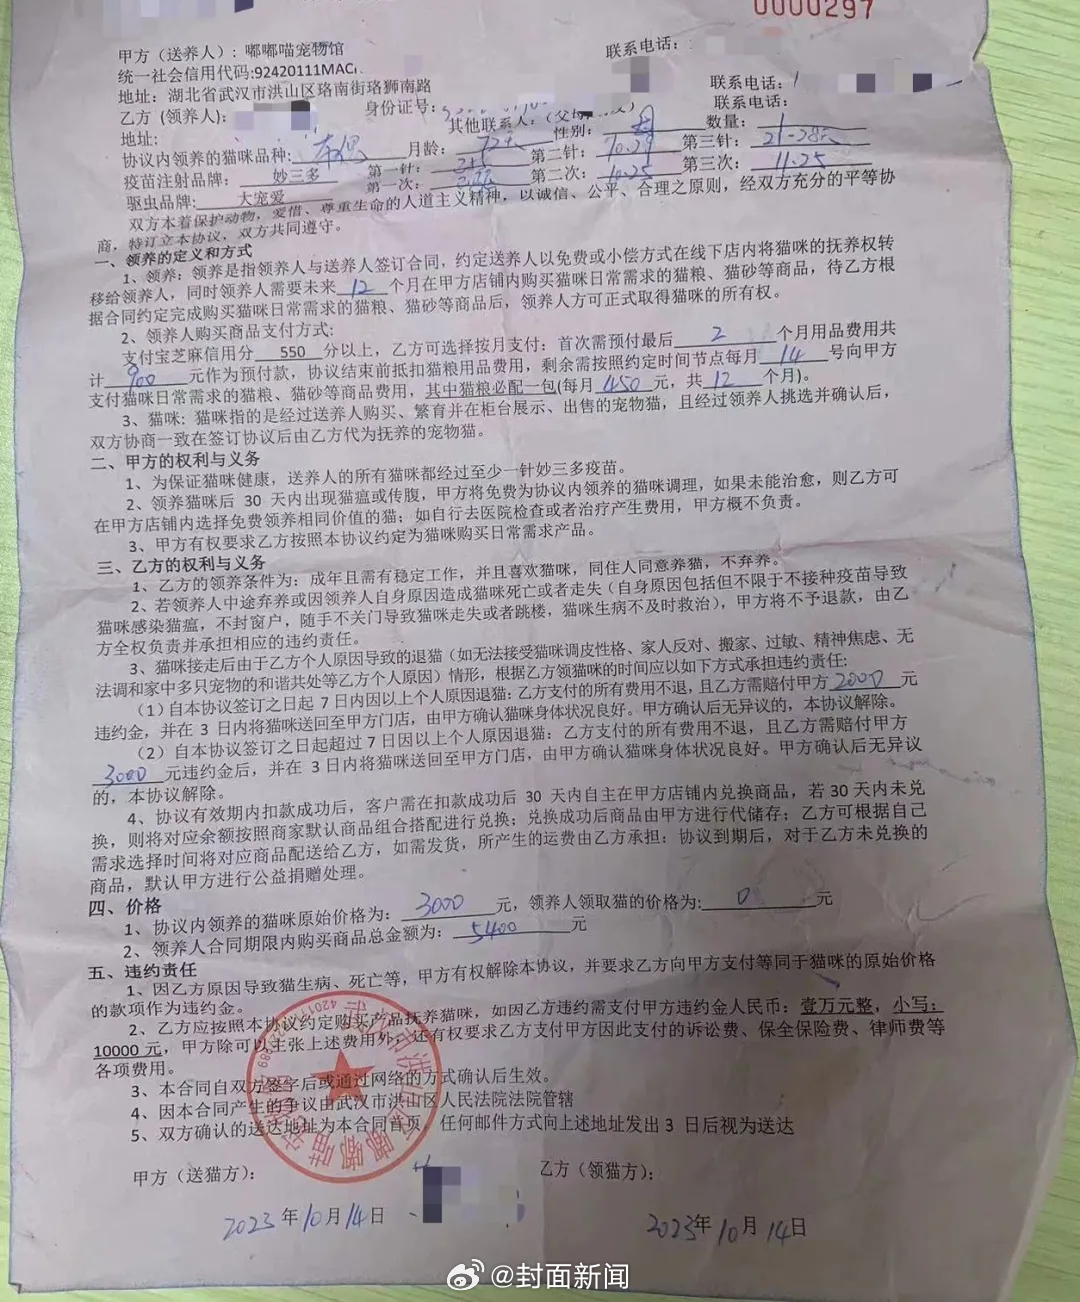 0000297
甲方（送养人）：嘟嘟喵宠物馆 联系电话：
统一社会信用代码:92420111MAC
地址：湖北省武汉市洪山区珞南街珞狮南路 联系电话：
乙方（领养人）： 身份证号： 联系电话：
地址： 其他联系人：（父母 ）
协议内领养的猫咪品种： 月龄：72天 性别：母 数量：
疫苗注射品牌：妙三多 第一针： 第二针：10.29 第三针：21-28天
驱虫品牌：大宠爱 第一次： 第二次：10.25 第三次：11.25
双方本着保护动物，爱惜、尊重生命的人道主义精神，以诚信、公平、合理之原则，经双方充分的平等协
商，特订立本协议，双方共同遵守。
一、领养的定义和方式
1、领养：领养是指领养人与送养人签订合同，约定送养人以免费或小偿方式在线下店内将猫咪的抚养权转
移给领养人，同时领养人需要未来 12 个月在甲方店铺内购买猫咪日常需求的猫粮、猫砂等商品，待乙方根
据合同约定完成购买猫咪日常需求的猫粮、猫砂等商品后，领养人方可正式取得猫咪的所有权。
2、领养人购买商品支付方式：
支付宝芝麻信用分 550 分以上，乙方可选择按月支付：首次需预付最后 2 个月用品费用共
计 900 元作为预付款，协议结束前抵扣猫粮用品费用，剩余需按照约定时间节点每月 14 号向甲方
支付猫咪日常需求的猫粮、猫砂等商品费用，其中猫粮必配一包(每月 450 元，共 12 个月)。
3、猫咪：猫咪指的是经过送养人购买、繁育并在柜台展示、出售的宠物猫，且经过领养人挑选并确认后，
双方协商一致在签订协议后由乙方代为抚养的宠物猫。
二、甲方的权利与义务
1、为保证猫咪健康，送养人的所有猫咪都经过至少一针妙三多疫苗。
2、领养猫咪后 30 天内出现猫瘟或传腹，甲方将免费为协议内领养的猫咪调理，如果未能治愈，则乙方可
在甲方店铺内选择免费领养相同价值的猫；如自行去医院检查或者治疗产生费用，甲方概不负责。
3、甲方有权要求乙方按照本协议约定为猫咪购买日常需求产品。
三、乙方的权利与义务
1、乙方的领养条件为：成年且需有稳定工作，并且喜欢猫咪，同住人同意养猫，不弃养。
2、若领养人中途弃养或因领养人自身原因造成猫咪死亡或者走失（自身原因包括但不限于不接种疫苗导致
猫咪感染猫瘟，不封窗户，随手不关门导致猫咪走失或者跳楼，猫咪生病不及时救治），甲方将不予退款，由乙
方全权负责并承担相应的违约责任。
3、猫咪接走后由于乙方个人原因导致的退猫（如无法接受猫咪调皮性格、家人反对、搬家、过敏、精神焦虑、无
法调和家中多只宠物的和谐共处等乙方个人原因）情形，根据乙方领猫咪的时间应以如下方式承担违约责任:
（1）自本协议签订之日起 7 日内因以上个人原因退猫：乙方支付的所有费用不退，且乙方需赔付甲方 2000 元
违约金，并在 3 日内将猫咪送回至甲方门店，由甲方确认猫咪身体状况良好。甲方确认后无异议的，本协议解除。
（2）自本协议签订之日起超过 7 日因以上个人原因退猫：乙方支付的所有费用不退，且乙方需赔付甲方
3000 元违约金后，并在 3 日内将猫咪送回至甲方门店，由甲方确认猫咪身体状况良好。甲方确认后无异议
的，本协议解除。
4、协议有效期内扣款成功后，客户需在扣款成功后 30 天内自主在甲方店铺内兑换商品，若 30 天内未兑
换，则将对应余额按照商家默认商品组合搭配进行兑换；兑换成功后商品由甲方进行代储存；乙方可根据自己
需求选择时间将对应商品配送给乙方，如需发货，所产生的运费由乙方承担：协议到期后，对于乙方未兑换的
商品，默认甲方进行公益捐赠处理。
四、价格
1、协议内领养的猫咪原始价格为： 3000 元，领养人领取猫的价格为: 0 元
2、领养人合同期限内购买商品总金额为： 5400 元
五、违约责任
1、因乙方原因导致猫生病、死亡等，甲方有权解除本协议，并要求乙方向甲方支付等同于猫咪的原始价格
的款项作为违约金。
2、乙方应按照本协议约定购买产品抚养猫咪，如因乙方违约需支付甲方违约金人民币：壹万元整，小写：
10000 元，甲方除可以主张上述费用外，还有权要求乙方支付甲方因此支付的诉讼费、保全保险费、律师费等
各项费用。
3、本合同自双方签字后或通过网络的方式确认后生效。
4、因本合同产生的争议由武汉市洪山区人民法院法院管辖
5、双方确认的送达地址为本合同首页，任何邮件方式向上述地址发出 3 日后视为送达
甲方（送猫方）： 乙方（领猫方）：
2023 年 10 月 14 日 2023 年 10 月 14 日
@封面新闻